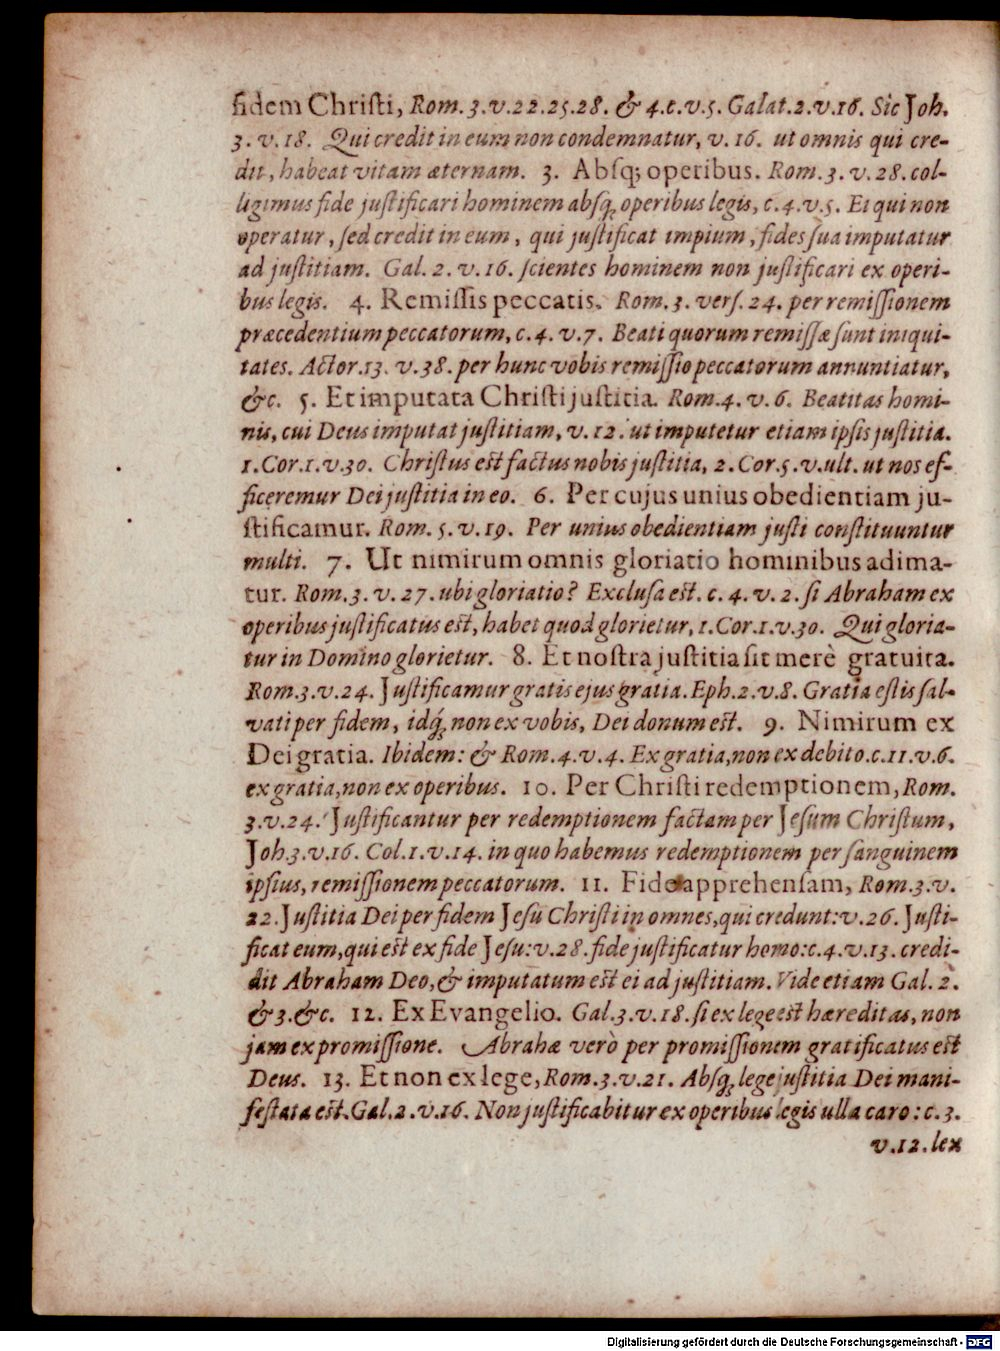 fidem Christi, Rom. 3. v. 22. 25. 28. & 4. c. v. 5. Galat. 2. v. 16. Sic Joh.
3. v. 18. Qui credit in eum non condemnatur, v. 16. ut omnis qui cre-
dit, habeat vitam æternam. 3. Absq; operibus. Rom. 3. v. 28. col-
ligimus fide justificari hominem absq; operibus legis, c. 4. v. 5. Ei qui non
operatur, sed credit in eum, qui justificat impium, fides sua imputatur
ad justitiam. Gal. 2. v. 16. scientes hominem non justificari ex operi-
bus legis. 4. Remissis peccatis. Rom. 3. vers. 24. per remissionem
præcedentium peccatorum, c. 4. v. 7. Beati quorum remissæ sunt iniqui-
tates. Actor. 13. v. 38. per hunc vobis remissio peccatorum annuntiatur,
&c. 5. Et imputata Christi justitia. Rom. 4. v. 6. Beatitas homi-
nis, cui Deus imputat justitiam, v. 12. ut imputetur etiam ipsis justitia.
1. Cor. 1. v. 30. Christus est factus nobis justitia, 2. Cor. 5. v. ult. ut nos ef-
ficeremur Dei justitia in eo. 6. Per cujus unius obedientiam ju-
stificamur. Rom. 5. v. 19. Per unius obedientiam justi constituuntur
multi. 7. Ut nimirum omnis gloriatio hominibus adima-
tur. Rom. 3. v. 27. ubi gloriatio? Exclusa est. c. 4. v. 2. si Abraham ex
operibus justificatus est, habet quod glorietur, 1. Cor. 1. v. 30. Qui gloria-
tur in Domino glorietur. 8. Et nostra justitia sit merè gratuita.
Rom. 3. v. 24. Justificamur gratis ejus gratia. Eph. 2. v. 8. Gratia estis sal-
vati per fidem, idq́; non ex vobis, Dei donum est. 9. Nimirum ex
Dei gratia. Ibidem: & Rom. 4. v. 4. Ex gratia, non ex debito. c. 11. v. 6.
ex gratia, non ex operibus. 10. Per Christi redemptionem, Rom.
3. v. 24. Justificantur per redemptionem factam per Jesum Christum,
Joh. 3. v. 16. Col. 1. v. 14. in quo habemus redemptionem per sanguinem
ipsius, remissionem peccatorum. 11. Fide apprehensam, Rom. 3. v.
22. Justitia Dei per fidem Jesu Christi in omnes, qui credunt: v. 26. Justi-
ficat eum, qui est ex fide Jesu: v. 28. fide justificatur homo: c. 4. v. 13. credi-
dit Abraham Deo, & imputatum est ei ad justitiam. Vide etiam Gal. 2.
& 3. &c. 12. Ex Evangelio. Gal. 3. v. 18. si ex lege est hæreditas, non
jam ex promissione. Abrahæ verò per promissionem gratificatus est
Deus. 13. Et non ex lege, Rom. 3. v. 21. Absq; lege justitia Dei mani-
festata est. Gal. 2. v. 16. Non justificabitur ex operibus legis ulla caro: c. 3.
v. 12. lex
Digitalisierung gefördert durch die Deutsche Forschungsgemeinschaft - DFG